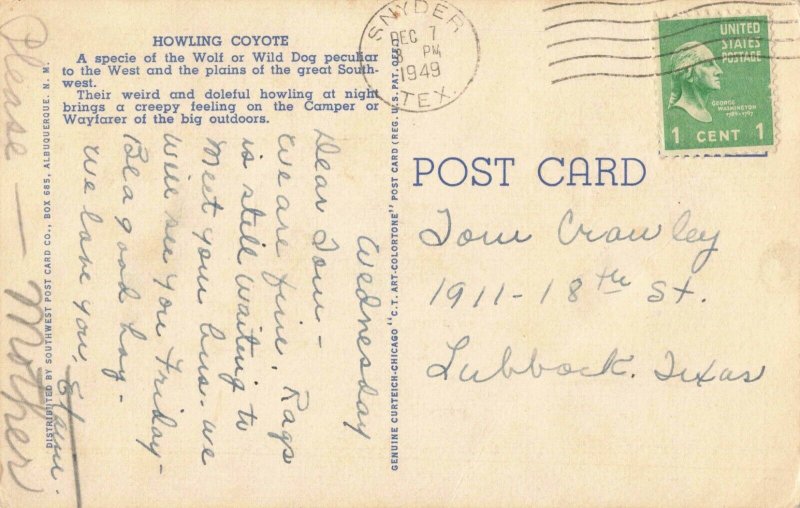 HOWLING COYOTE
A specie of the Wolf or Wild Dog peculiar
to the West and the plains of the great South-
west.
Their weird and doleful howling at night
brings a creepy feeling on the Camper or
Wayfarer of the big outdoors.
SNYDER
DEC 7
8 PM
1949
TEX.
UNITED
STATES
POSTAGE
GEORGE
WASHINGTON
1789-1797
1 CENT 1
POST CARD
Tom Crawley
1911-18th St.
Lubbock, Texas
Wednesday
Dear Tom-
We are fine. Rags
is still waiting to
meet your bus. We
will see you Friday-
Be a good boy-
We love you,
Please — Mother
DISTRIBUTED BY SOUTHWEST POST CARD CO., BOX 685, ALBUQUERQUE, N. M.
GENUINE CURTEICH-CHICAGO "C.T. ART-COLORTONE" POST CARD (REG. U.S. PAT. OFF.)